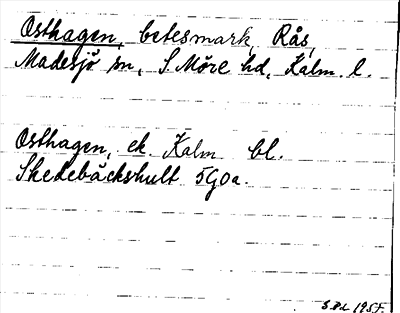 Osthagen, betesmark, Rås,
Madesjö sn, S. Möre hd, Kalm. l.
Osthagen, ek. Kalm bl.
Skedebäckshult 5G0a.